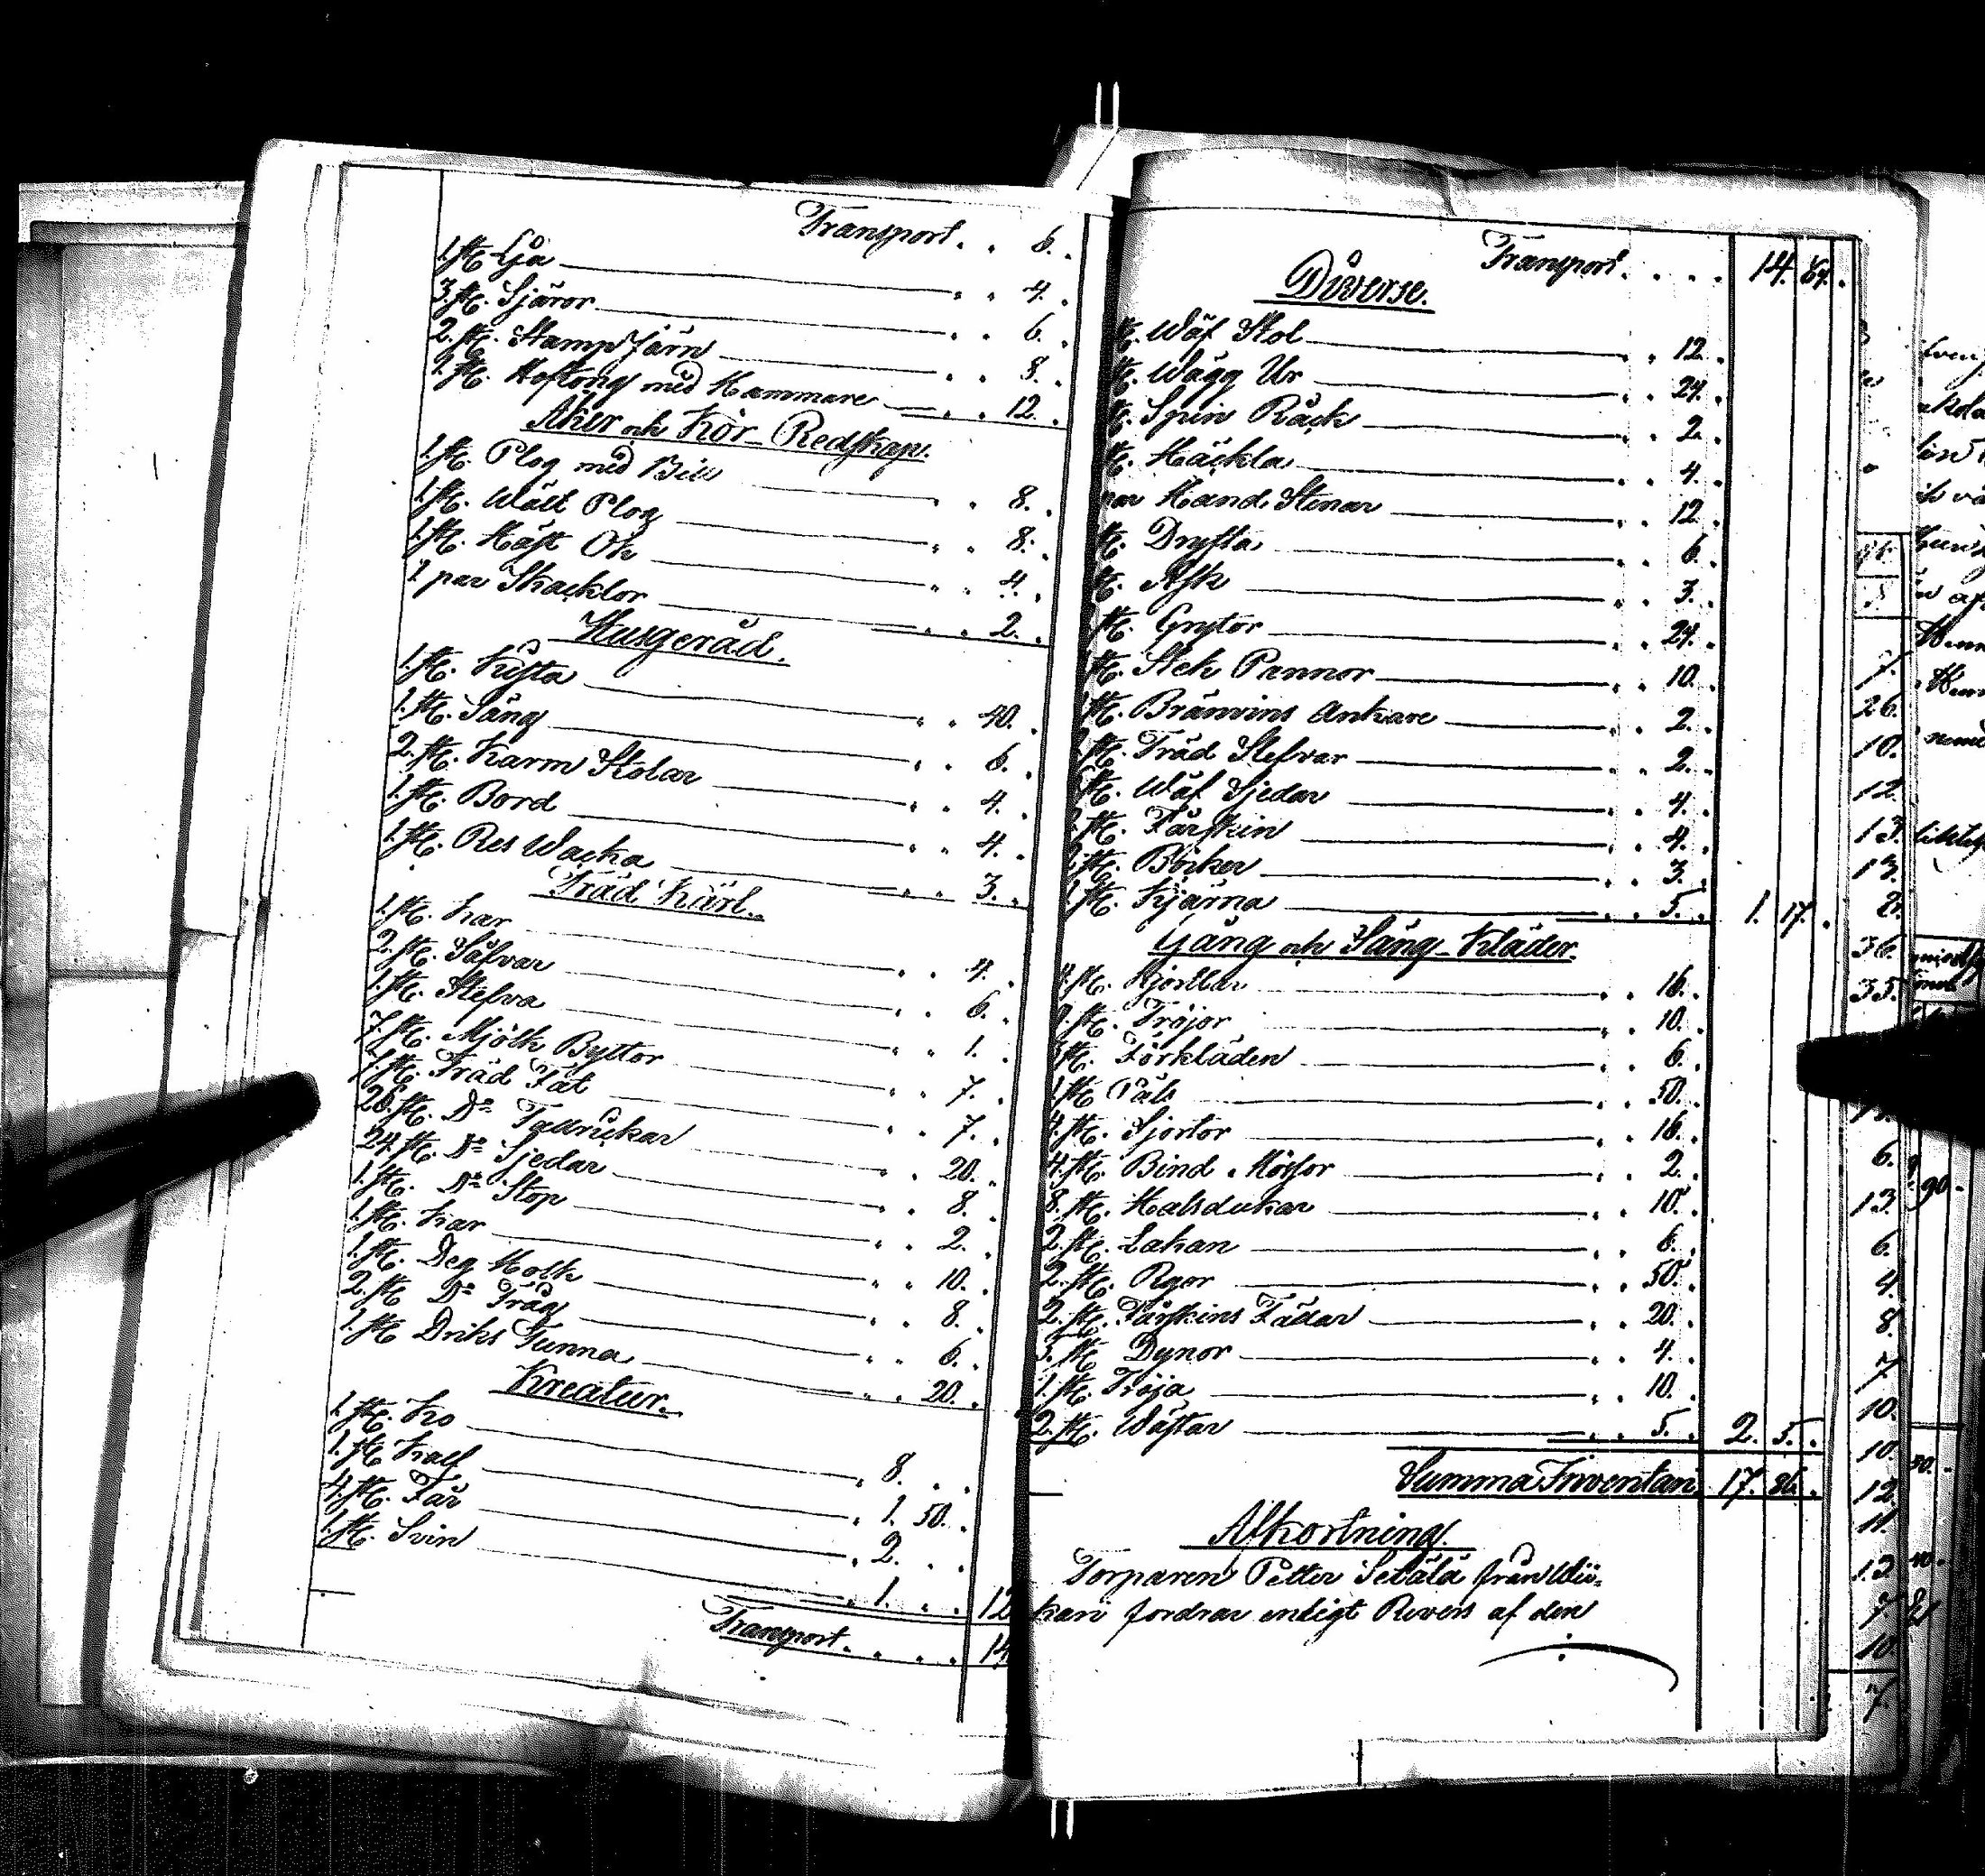 Transport. . 6. .
1. st. Lja „ „ 4. .
3. st. Sjäror „ „ 6. .
2. st. Stampjärn „ „ 8. .
1. st. Hoftång med Hammare „ „ 12. .
Åker och Kör-Redskap.
1. st. Plog med Bill „ „ 8. .
1. st. Wält Plog „ „ 8. .
1. st. Häst Ok „ „ 4. .
1. par Skacklor „ „ 2. .
Husgeråd.
1. st. Kista „ „ 40. .
1. st. Säng „ „ 6. .
2. st. Karm Stolar „ „ 4. .
1. st. Bord „ „ 4. .
1. st. Res Wacka „ „ 3. .
Träd Kärl.
1. st. Kar „ „ 4. .
2. st. Såfvar „ „ 6. .
1. st. Stefva „ „ 1. .
7. st. Mjölk Byttor „ „ 7. .
7. st. Träd Fat „ „ 7. .
20. st. D:o Tallrickar „ „ 20. .
24. st. D:o Sjedar „ „ 8. .
1. st. D:o Stop „ „ 2. .
1. st. Kar „ „ 10. .
1. st. Deg Holk „ „ 8. .
2. st. D:o Tråg „ „ 6. .
1. st. Driks Tunna „ „ 20. .
Kreatur.
1. st. Ko „ 8. . .
1. st. Kalf „ 1. 50. .
4. st. Får „ 2. . .
1. st. Svin „ 1. „ . 12
Transport. . . . . 14
Transport. . . . 14. 64. .
Diverse.
st. Wäf Stol „ „ 12. .
st. Wägg Ur „ „ 24. .
st. Spin Råck „ „ 2. .
st. Häckla „ „ 4. .
par Hand Stenar „ „ 12. .
st. Dryfta „ „ 6. .
st. Ask „ „ 3. .
st. Grytor „ „ 24. .
st. Stek Pannor „ „ 10. .
st. Bränvins Ankare „ „ 2. .
st. Träd Stefvar „ „ 2. .
st. Wäf Sjedar „ „ 4. .
st. Fårskin „ „ 4. .
st. Böcker „ „ 3. .
1. st. Kjärna „ „ 5. . 1. 17. .
Gång och Säng-Kläder.
4. st. Kjortlar „ „ 16. .
st. Tröjor „ „ 10. .
3 st. Förkläden „ „ 6. .
1. st. Päls „ „ 50. .
4. st. Sjortor „ „ 16. .
4. st. Bind Mössor „ „ 2. .
8. st. Halsdukar „ „ 10. .
2. st. Lakan „ „ 6. .
2. st. Ryor „ „ 50. .
2. st. Fårskins Fällar „ „ 20. .
3. st. Dynor „ „ 4. .
1. st. Tröja „ „ 10. .
2. st. Wästar „ „ 5. . 2. 5. .
Summa Inventari 17. 86. .
Afkortning.
Torparen Petter Setälä från
kari fordrar enligt Revers af den